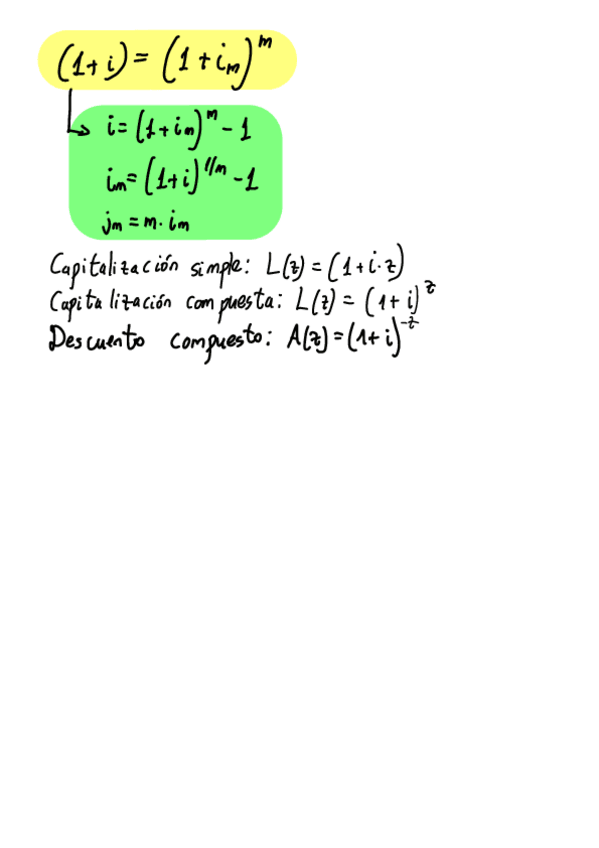 (1+i) = (1+iₘ)ᵐ
i = (1+iₘ)ᵐ - 1
iₘ = (1+i)^1/m - 1
jₘ = m · iₘ
Capitalización simple: L(z) = (1+i·z)
Capitalización compuesta: L(z) = (1+i)^z
Descuento compuesto: A(z) = (1+i)^-z